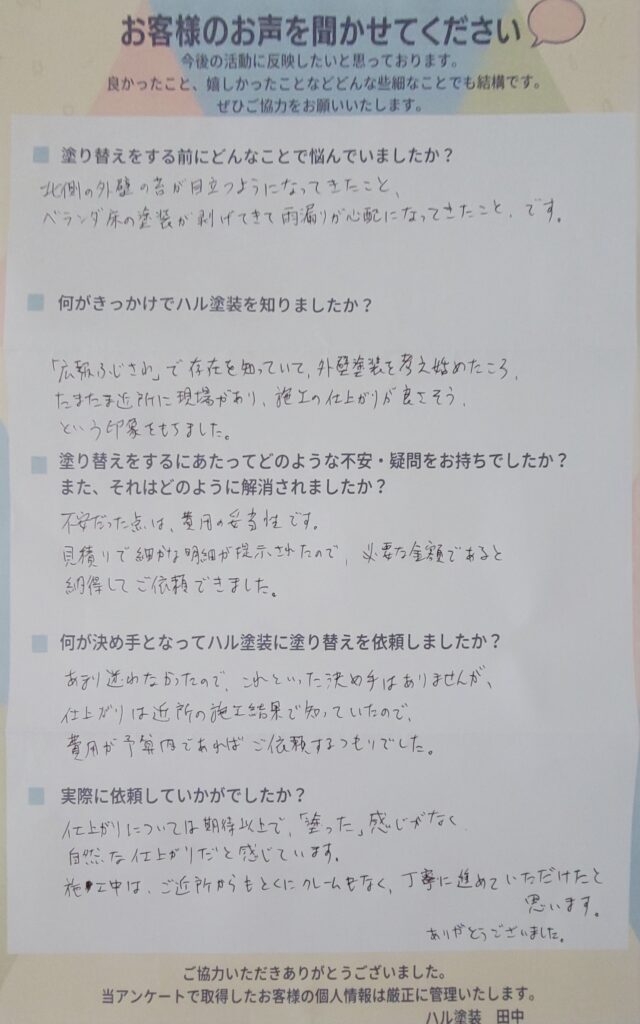 お客様のお声を聞かせてください
今後の活動に反映したいと思っております。
良かったこと、嬉しかったことなどどんな些細なことでも結構です。
ぜひご協力をお願いいたします。
塗り替えをする前にどんなことで悩んでいましたか？
北側の外壁の苔が目立つようになってきたこと、
ベランダ床の塗装が剥げてきて雨漏りが心配になってきたこと、です。
何がきっかけでハル塗装を知りましたか？
「広報ふじさわ」で存在を知っていて、外壁塗装を考え始めたころ、
たまたま近所に現場があり、施工の仕上がりが良さそう、
という印象をもちました。
塗り替えをするにあたってどのような不安・疑問をお持ちでしたか？
また、それはどのように解消されましたか？
不安だった点は、費用の妥当性です。
見積りで細かな明細が提示されたので、必要な金額であると
納得してご依頼できました。
何が決め手となってハル塗装に塗り替えを依頼しましたか？
あまり迷わなかったので、これといった決め手はありませんが、
仕上がりは近所の施工結果で知っていたので、
費用が予算内であればご依頼するつもりでした。
実際に依頼していかがでしたか？
仕上がりについては期待以上で、「塗った」感じがなく
自然な仕上がりだと感じています。
施工中は、ご近所からもとくにクレームもなく、丁寧に進めていただけたと
思います。
ありがとうございました。
ご協力いただきありがとうございました。
当アンケートで取得したお客様の個人情報は厳正に管理いたします。
ハル塗装　田中